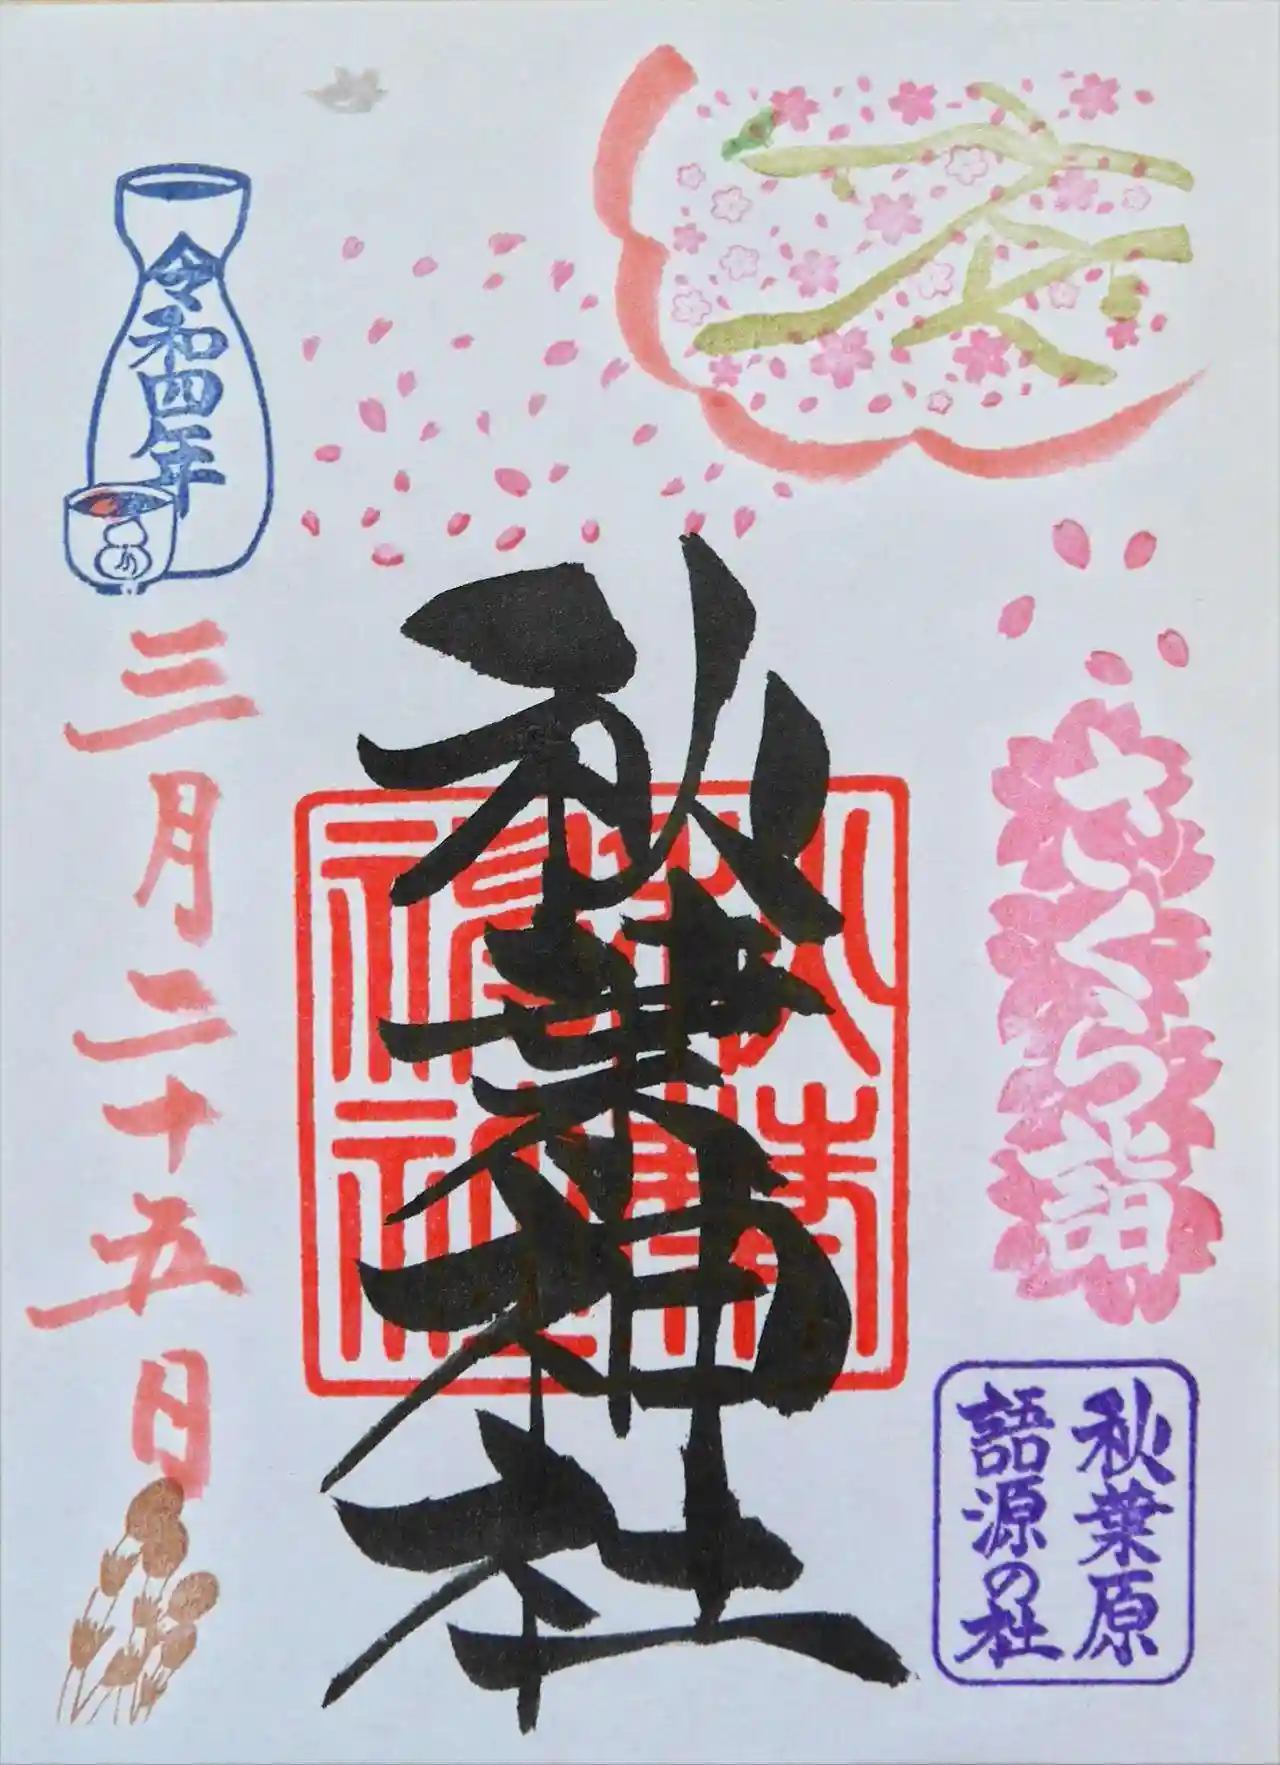 さくら詣
秋葉原
語源の社
秋葉神社
秋葉神社
令和四年
三月二十五日